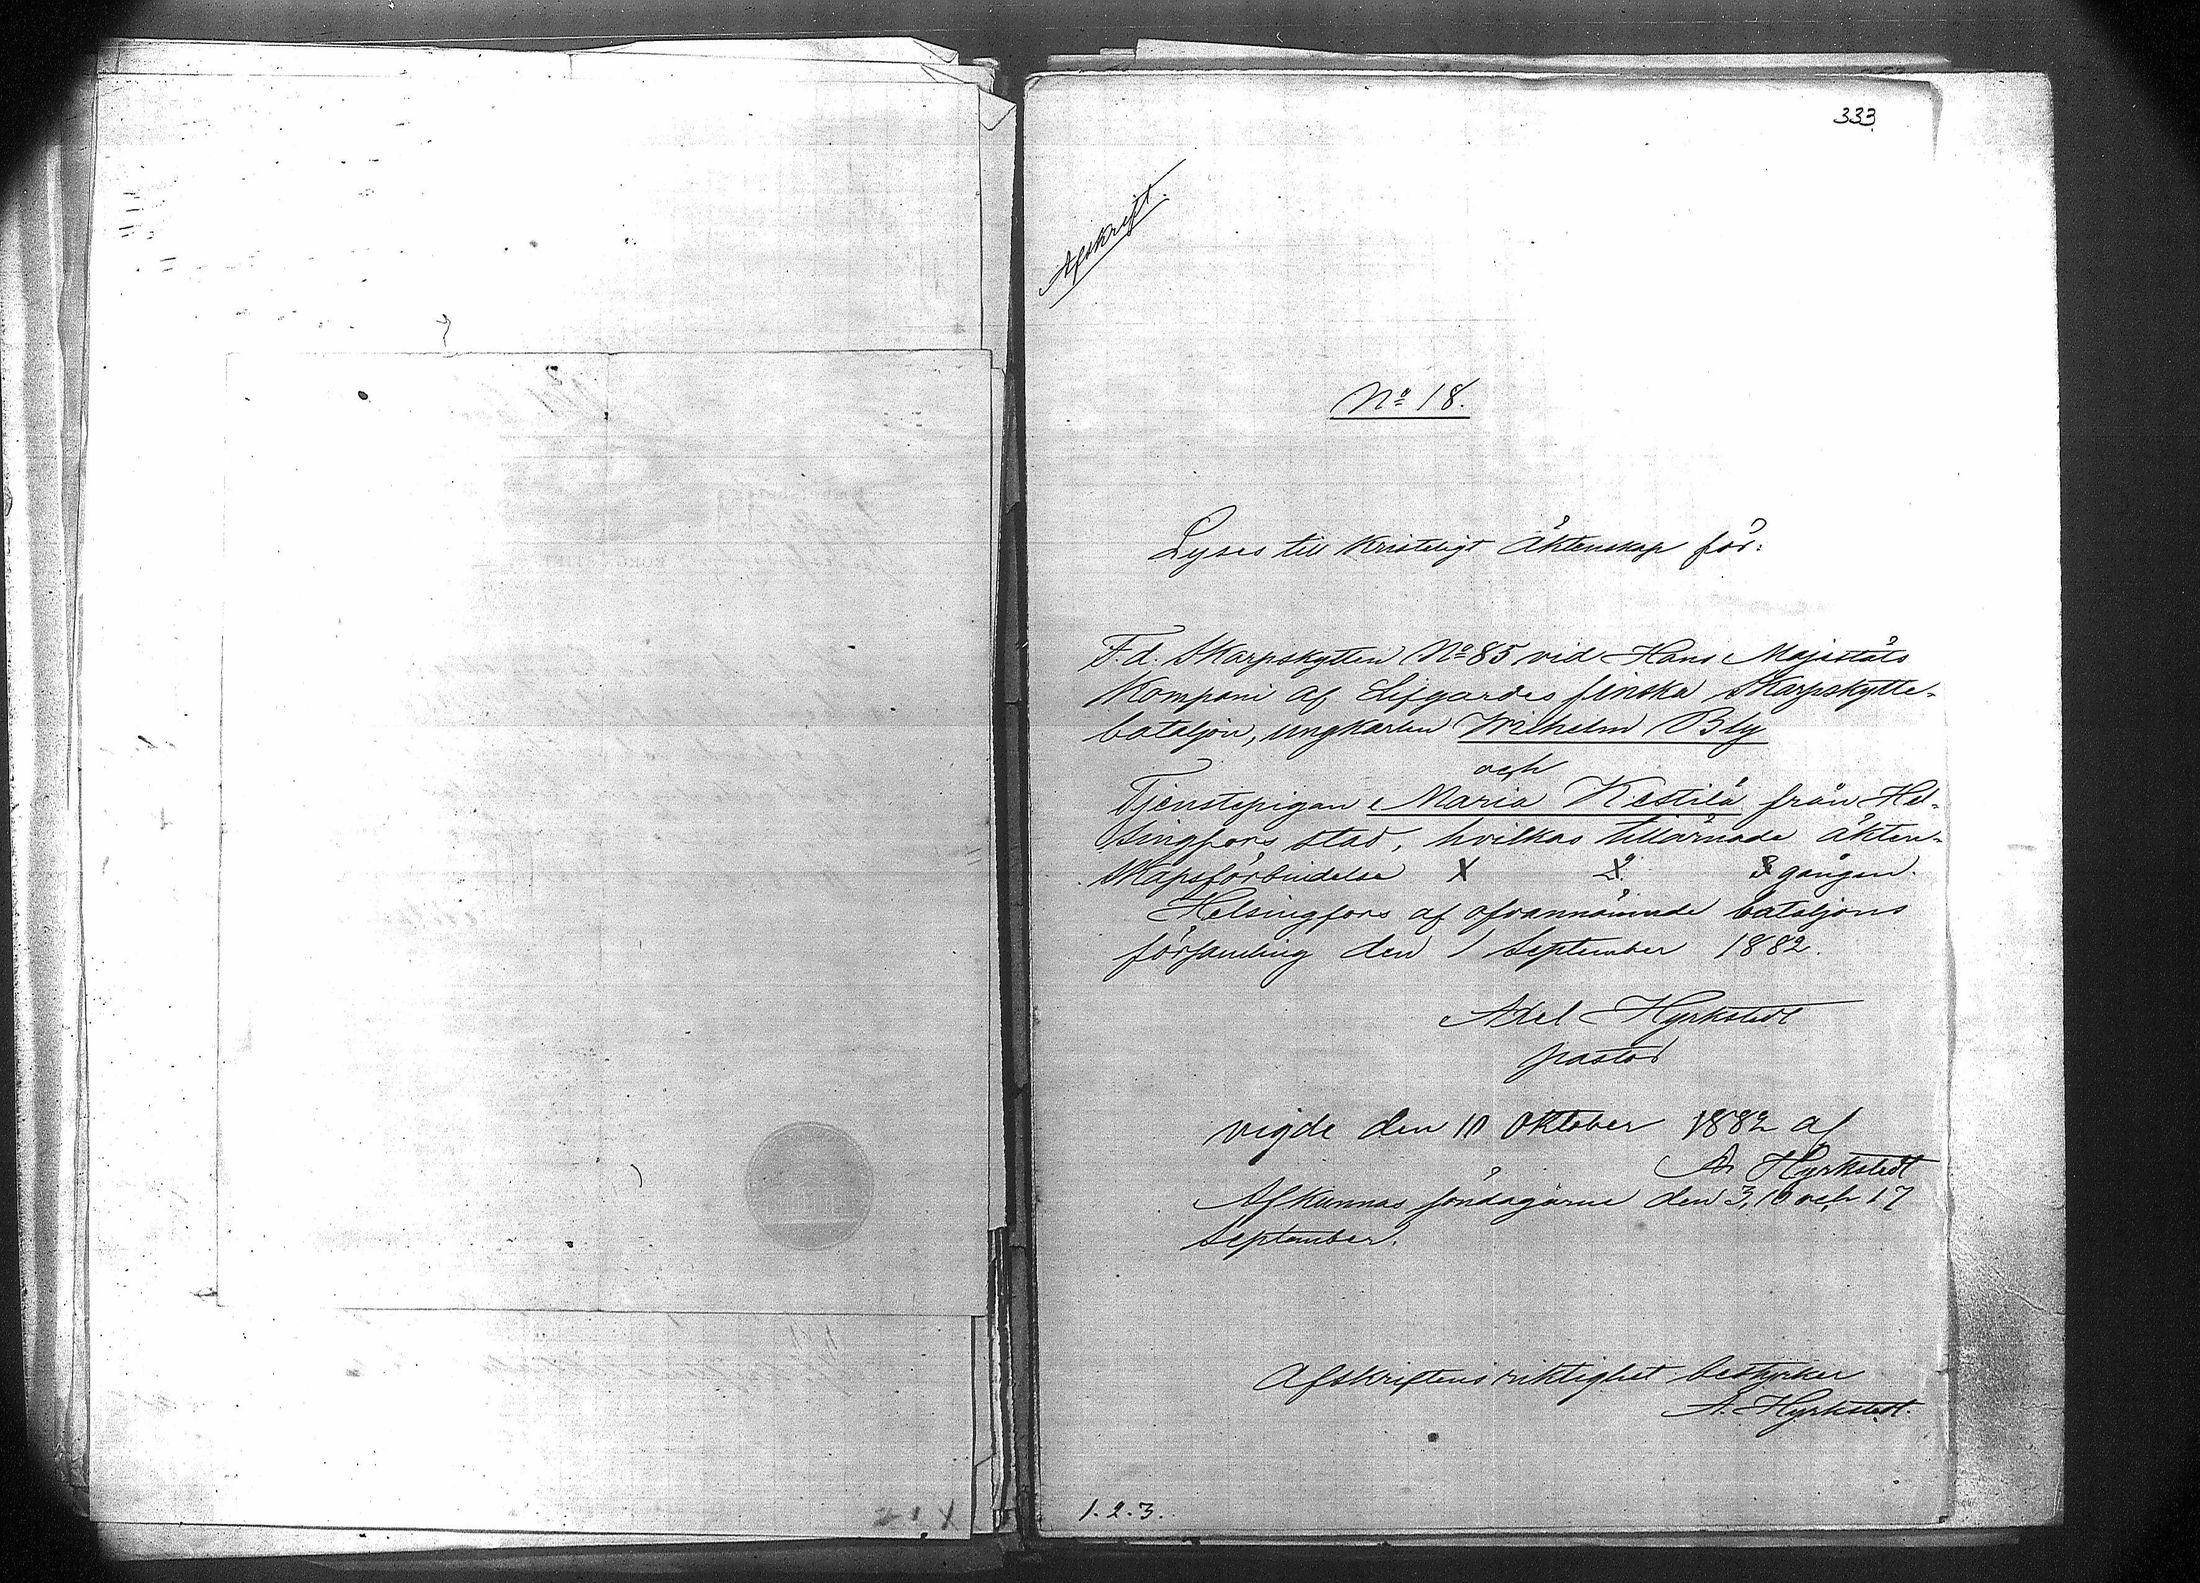 333
Afskrift.
No 18.
Lyses till Kristeligt Äktenskap för:
F. d. Skarpskytten No 85 vid Hans Majestäts
Kompani af Lifgardes finska Skarpskytte-
bataljon, ungkarlen Wilhelm Bly
och
Tjenstepigan Maria Kestilä från Hel-
singfors stad, hvilkas tillärnade äkten-
skapsförbindelse 1 2 3 gången.
Helsingfors af ofvannämnde bataljons
församling den 1 September 1882.
Axel Hyrkstedt
pastor
vigde den 10 Oktober 1882 af
A. Hyrkstedt
Afkunnas söndagarne den 3, 10 och 17
September.
Afskriftens riktighet bestyrker
A. Hyrkstedt.
1. 2. 3.